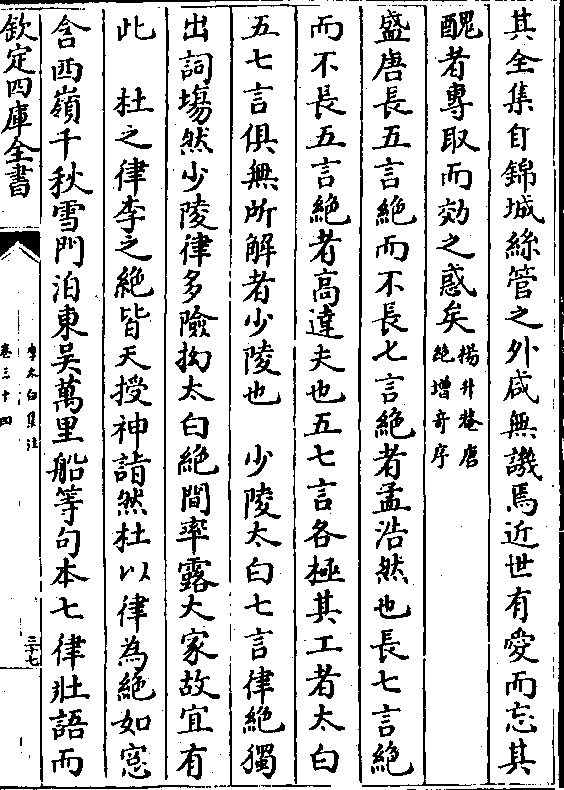 其全集自錦城絲管之外咸無譏焉近世有愛而忘其
醜者專取而効之惑矣楊升菴唐絕增奇序
盛唐長五言絕而不長七言絕者孟浩然也長七言絕
而不長五言絕者高達夫也五七言各極其工者太白
五七言俱無所解者少陵也　少陵太白七言律絕獨
出詞塲然少陵律多險拗太白絕間率露大家故宜有
此　杜之律李之絕皆天授神詣然杜以律為絕如窓
含西嶺千秋雪門泊東吳萬里船等句本七律壯語而
欽定四庫全書
李太白集注
卷三十四
三十七